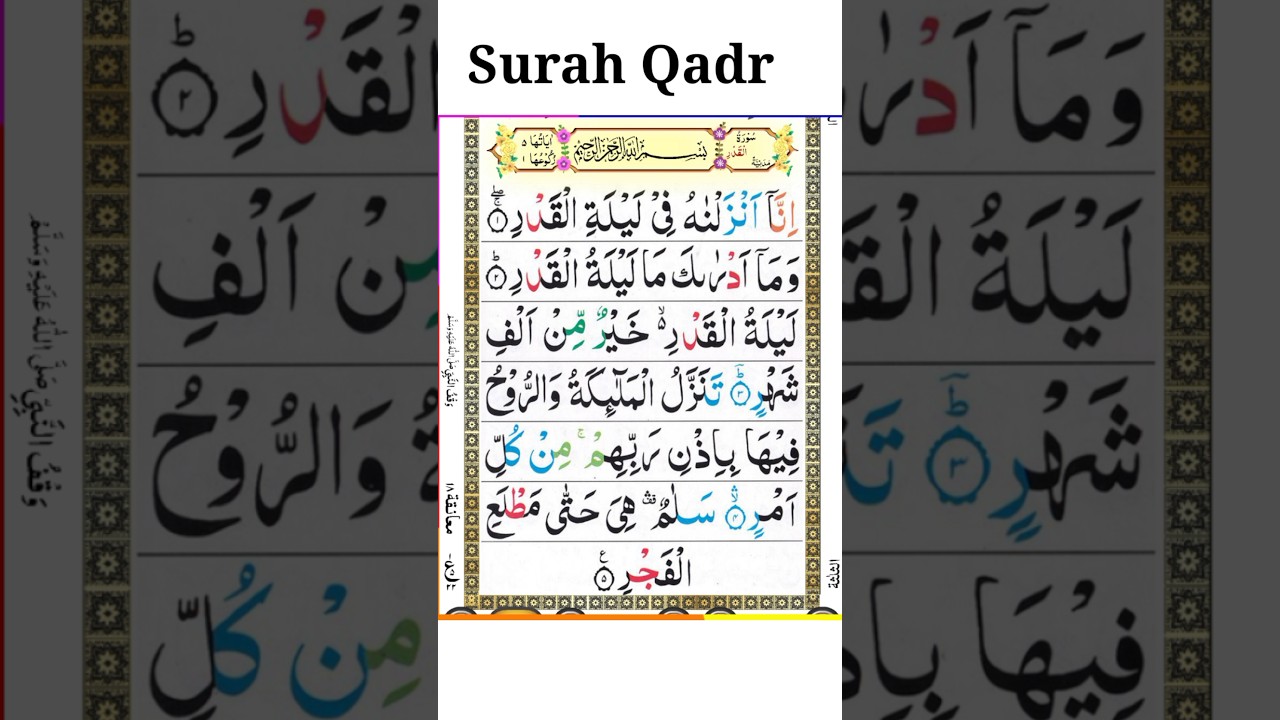 Surah Qadr
سُوْرَةُ الْقَدْرِ مَدَنِيَّةٌ
بِسْمِ اللّٰهِ الرَّحْمٰنِ الرَّحِيْمِ
اٰيَاتُهَا ٥
رُكُوْعُهَا ١
اِنَّآ اَنْزَلْنٰهُ فِيْ لَيْلَةِ الْقَدْرِ ۝١ۚۖ
وَمَآ اَدْرٰىكَ مَا لَيْلَةُ الْقَدْرِ ۝٢ؕ
لَيْلَةُ الْقَدْرِ ۙ۬ خَيْرٌ مِّنْ اَلْفِ
شَهْرٍ ۝٣ؕ تَنَزَّلُ الْمَلٰٓئِكَةُ وَالرُّوْحُ
فِيْهَا بِاِذْنِ رَبِّهِمْ ۚ مِنْ كُلِّ
اَمْرٍ ۝٤ۙۛ سَلٰمٌ ۛ۫ هِيَ حَتّٰى مَطْلَعِ
الْفَجْرِ ۝٥ ع
وَقْفُ النَّبِيِّ صَلَّى اللّٰهُ عَلَيْهِ وَسَلَّمَ
معانقة ١٨
الثلثة